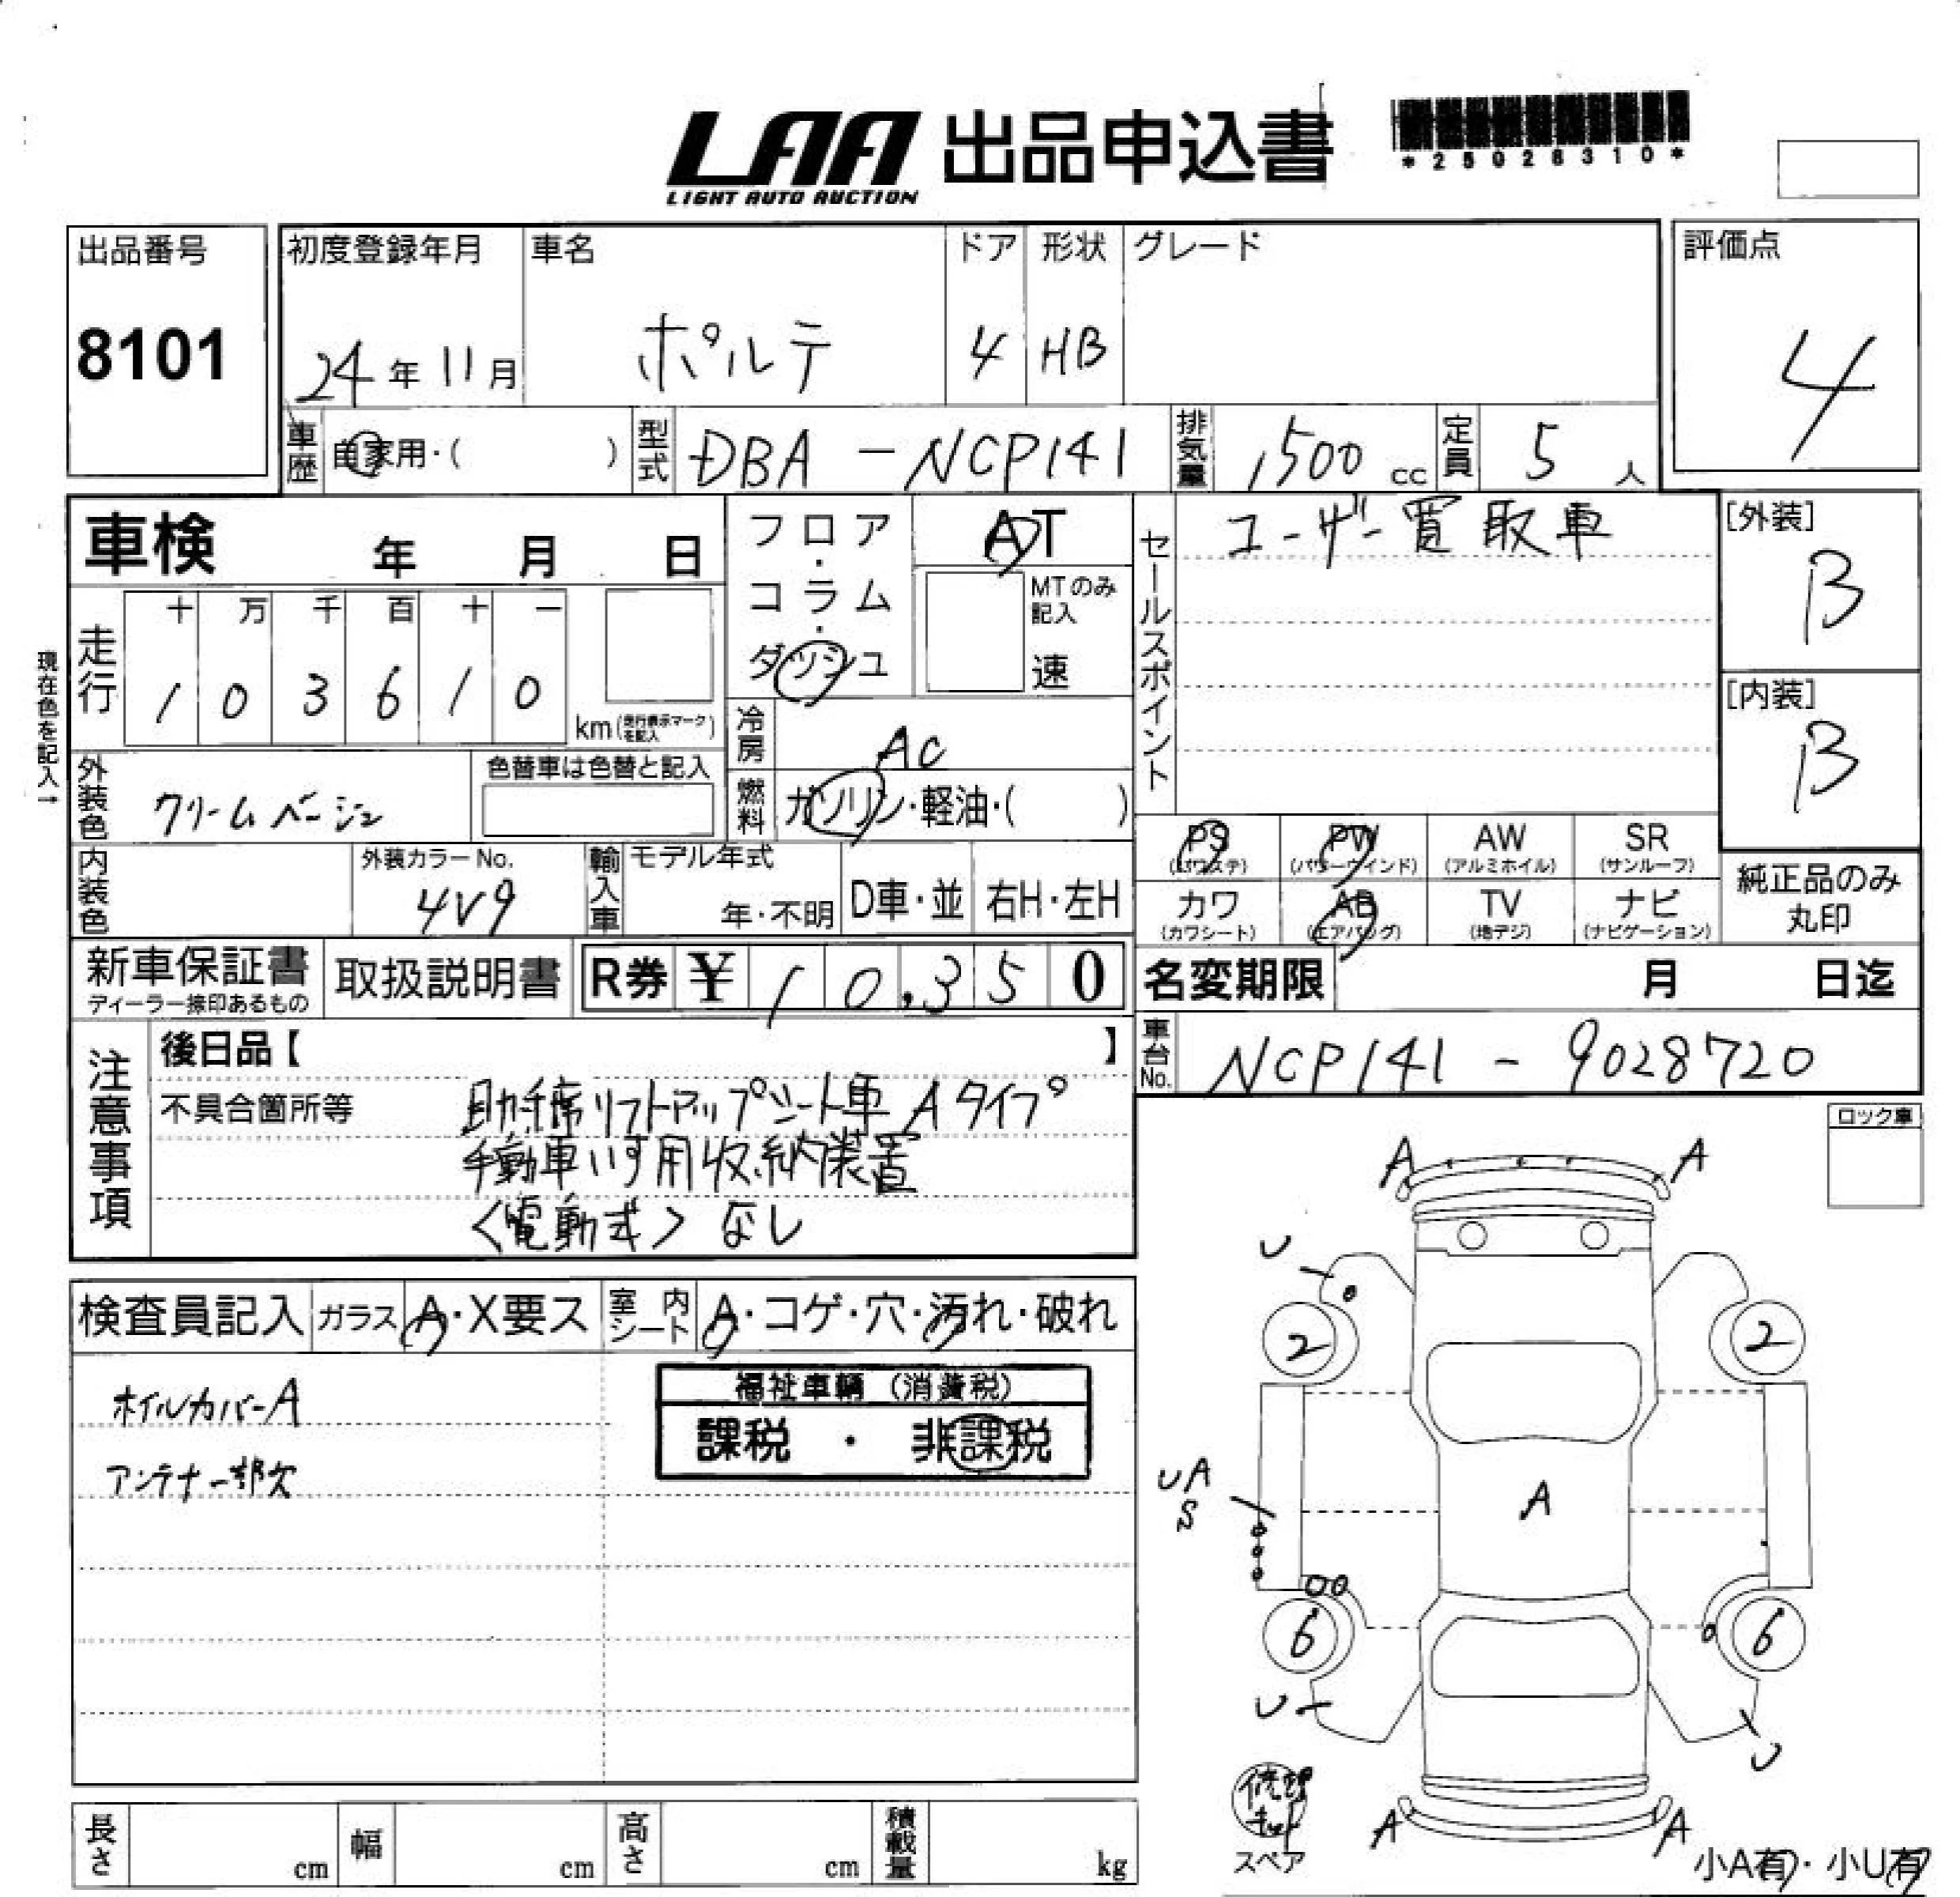 LAA 出品申込書
LIGHT AUTO AUCTION
*25028310*
出品番号
8101
初度登録年月
24年11月
車名
ポルテ
ドア
4
形状
HB
グレード
評価点
4
車歴 自家用・( )
型式 DBA-NCP141
排気量 1,500 cc
定員 5人
車検 年 月 日
フロア・コラム・ダッシュ
AT
MTのみ記入
速
セールスポイント
ユーザー買取車
[外装]
B
[内装]
B
現在色を記入→
走行
十 万 千 百 十 一
1 0 3 6 1 0
km(走行表示マークを記入)
冷房 AC
燃料 ガソリン・軽油・( )
外装色 クリームベージュ
色替車は色替と記入
内装色
外装カラーNo.
4V9
輸入車
モデル年式
年・不明
D車・並
右H・左H
PS (パワステ)
PW (パワーウインド)
AW (アルミホイル)
SR (サンルーフ)
カワ (カワシート)
AB (エアバッグ)
TV (地デジ)
ナビ (ナビゲーション)
純正品のみ
丸印
新車保証書
ディーラー捺印あるもの
取扱説明書
R券 ¥ 10,350
名変期限 月 日迄
車台No. NCP141-9028720
注意事項
後日品【 】
不具合箇所等
助手席リフトアップシート車 Aタイプ
手動車いす用収納装置
<電動式> なし
ロック車
検査員記入
ガラス A・X要ス
室内シート A・コゲ・穴・汚れ・破れ
ホイルカバーA
アンテナ一部欠
福祉車輌 (消費税)
課税 ・ 非課税
A
A
U
2
2
UA
S
A
6
6
U
U
修理キット
スペア
A
A
小A有・小U有
長さ cm
幅 cm
高さ cm
積載量 kg